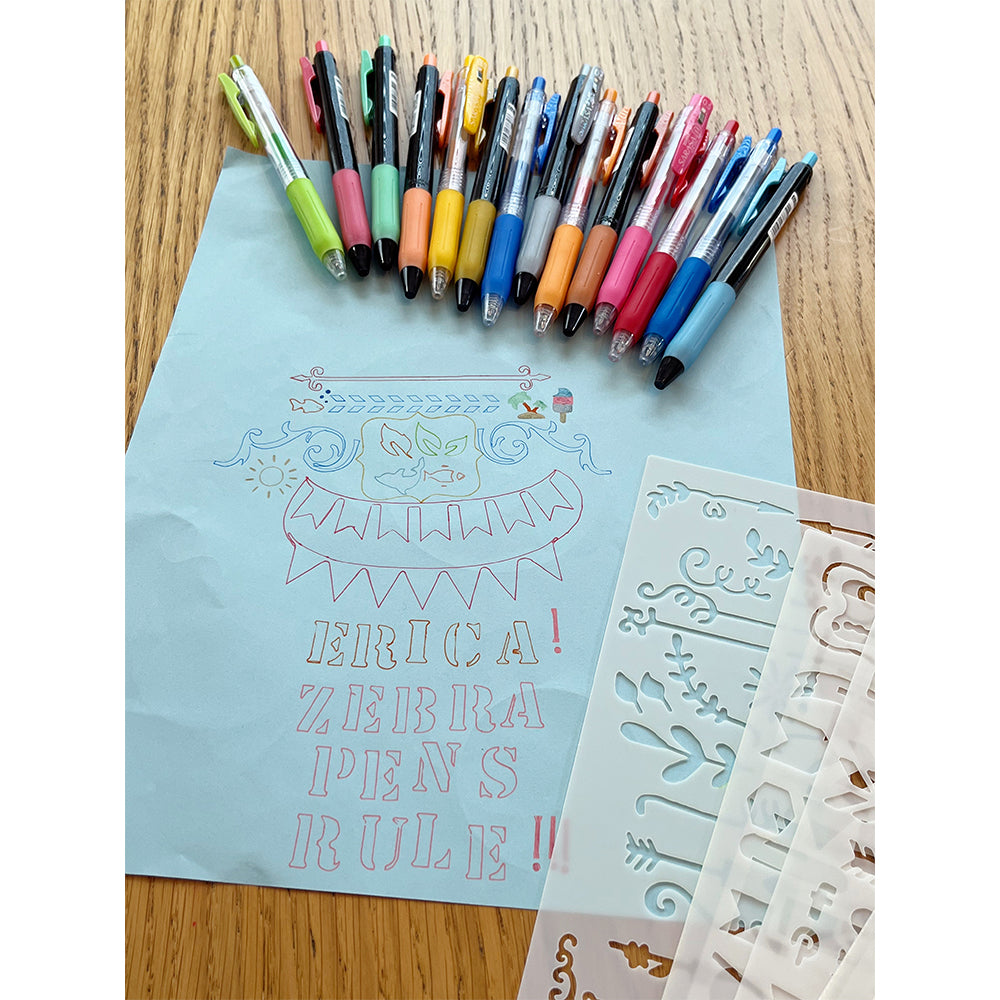 ERICA!
ZEBRA
PENS
RULE!!